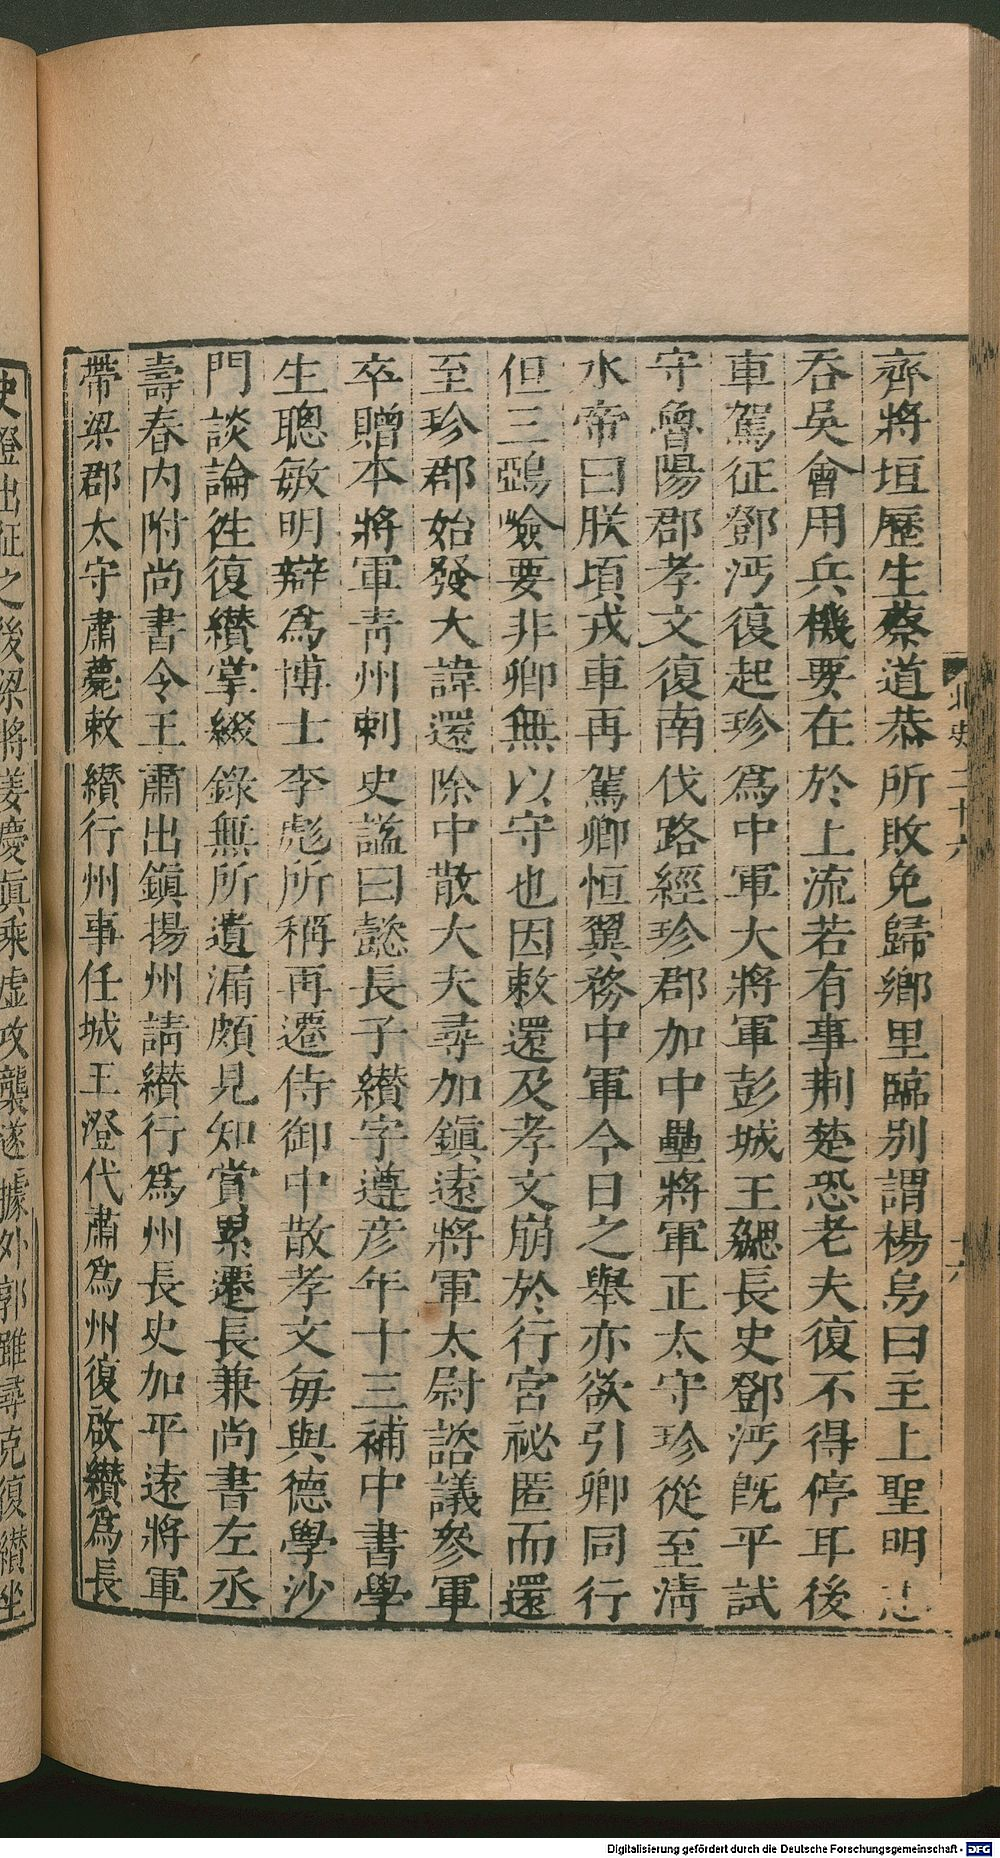 齊將垣歷生蔡道恭所敗免歸鄉里臨別謂楊烏曰主上聖明志
吞吳會用兵機要在於上流若有事荆楚恐老夫復不得停耳後
車駕征鄧沔復起珍為中軍大將軍彭城王勰長史鄧沔旣平試
守魯陽郡孝文復南伐路經珍郡加中壘將軍正太守珍從至淯
水帝曰朕頃戎車再駕卿恒翼務中軍今日之舉亦欲引卿同行
但三鵶嶮要非卿無以守也因敕還及孝文崩於行宮祕匿而還
至珍郡始發大諱還除中散大夫尋加鎭遠將軍太尉諮議參軍
卒贈本將軍靑州刺史謚曰懿長子纉字遵彥年十三補中書學
生聰敏明辯為博士李彪所稱再遷侍御中散孝文每與德學沙
門談論徃復纉掌綴錄無所遺漏頗見知賞累遷長兼尚書左丞
壽春内附尚書令王肅出鎭揚州請纉行為州長史加平遠將軍
帶梁郡太守肅薨敕纉行州事任城王澄代肅為州復啟纉為長
史澄出征之後梁將姜慶眞乘虛攻襲遂據外郭雖尋克復纉坐
北史二十六
十六
Digitalisierung gefördert durch die Deutsche Forschungsgemeinschaft - DFG